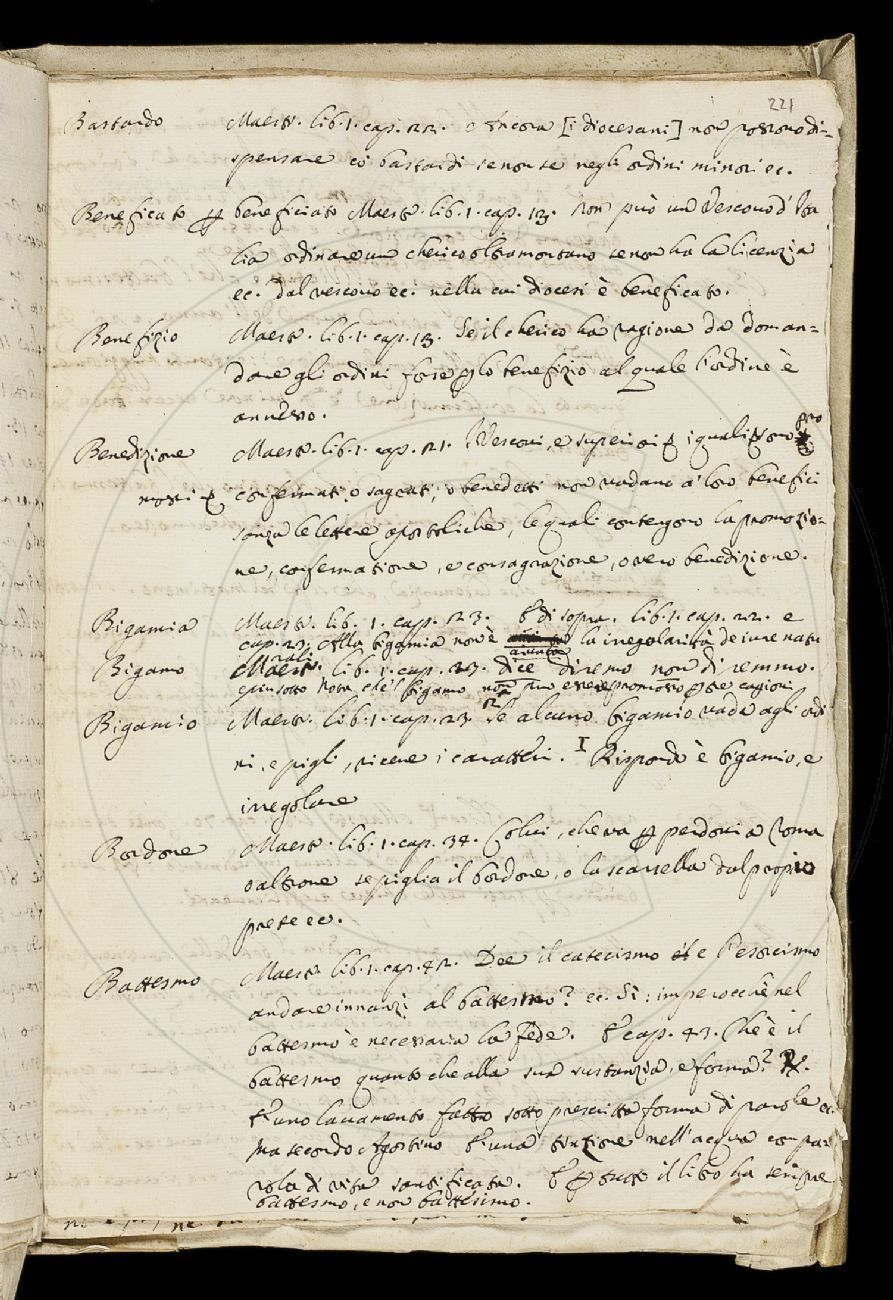 221
Bastardo Maestr. lib. 1. cap. 22. Ancora [i diocesani] non possono di=
spensare co' bastardi se non se negli ordini minori ec.
Beneficato beneficiato Maestr. lib. 1. cap. 13. Non può un Vescovo d'Ita
lia ordinare un cherico oltramontano se non ha la licenzia
ec. dal vescovo ec. nella cui diocesi è beneficato.
Benefizio Maestr. lib. 1. cap. 13. Se il cherico ha ragione da doman=
dare gli ordini forse lo benefizio al quale l'ordine è
annesso.
Benedizione Maestr. lib. 1. cap. 21. Vescovi, e superiori i quali sono pro
mossi confermati, o sagrati, o benedetti non vadano a' loro benefici
sanza le lettere apostoliche, le quali contengono la promozio=
ne, confermatione, e consagrazione, overo benedizione.
Bigamia Maestr. lib. 1. cap. 23. E di sopra. lib. 1. cap. 22. e
cap. 23. Alla bigamia non è la irregolarità de iure natu
rali
Bigamo Maestr. lib. 1. cap. 23. dice diremo non diremmo.
e più sotto Nota che'l bigamo non può essere promosso tre cagioni
Bigamio Maestr. lib. 1. cap. 23. Se alcuno bigamio vada agli ordi
ni, e pigli, riceve i caratteri. Risponde è bigamio, e
irregolare
Bordone Maestr. lib. 1. cap. 34. Colui, che va perdoni a Roma
o altrove se piglia il bordone, o la scarsella dal propio
prete ec.
Battesmo Maestr. lib. 1. cap. 42. Dee il catecismo e l'esorcismo
andare innanzi al battesmo? ec. Sì: imperocchè nel
battesmo è necessaria la Fede. E cap. 43. Che è il
battesmo quanto che alla sua sustanzia, e forma? R.
E uno lavamento fatto sotto prescritta forma di parole ec.
Ma secondo Agostino è una tinzione nell'acqua con pa=
rola di vita santificata. E tutto il libro ha sempre
battesmo, e non battesimo.